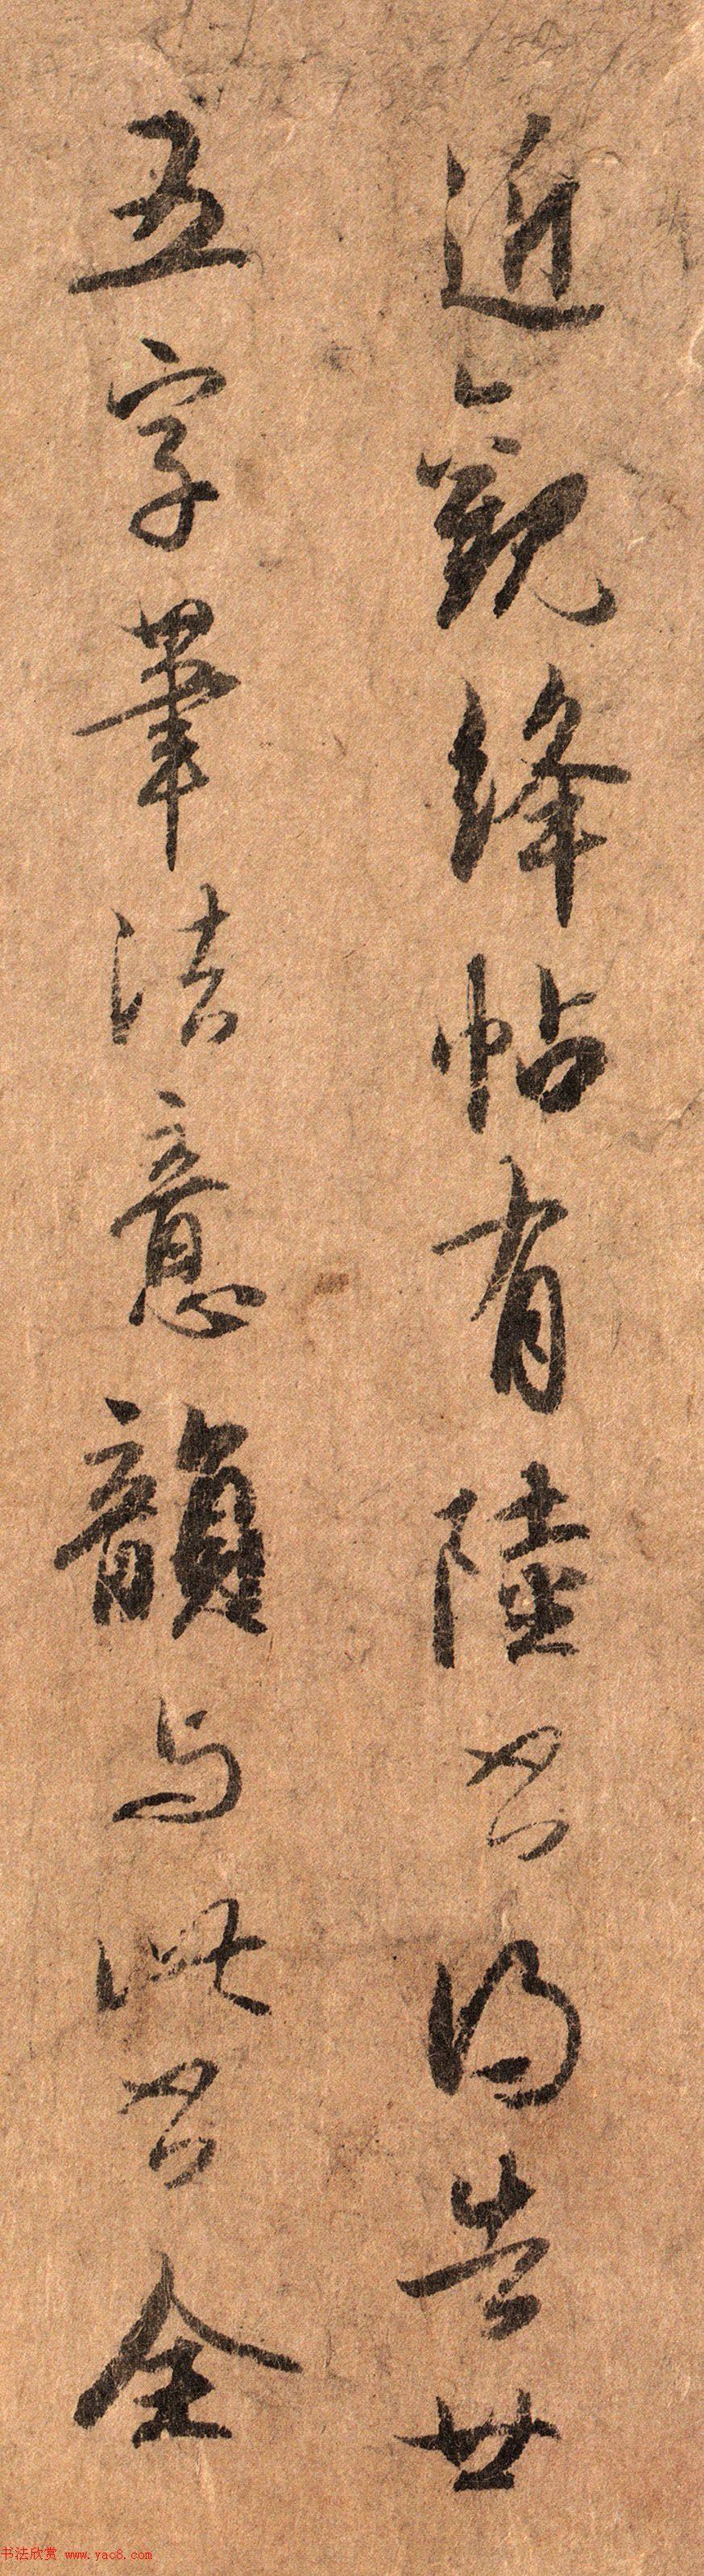 近觀絳帖有陸公得告廿
五字筆法意韻与此公全
书法欣赏 www.yac8.com